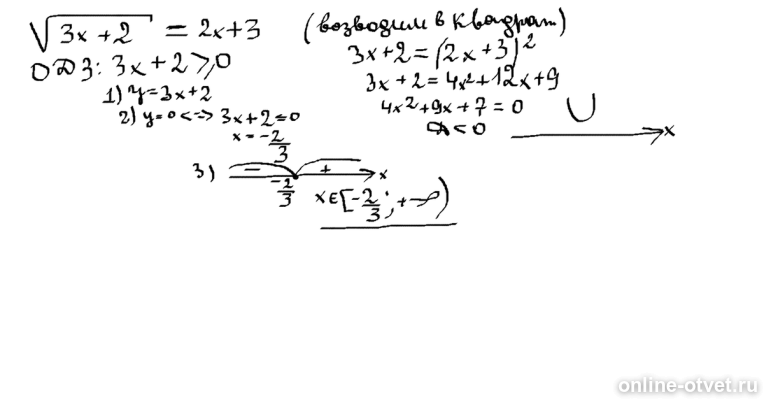 √3x+2 = 2x+3 (возводим в квадрат)
ОДЗ: 3x+2≥0
1) y=3x+2
2) y=0 <=> 3x+2=0
x=-2/3
3) - + x
-2/3
x∈[-2/3; +∞)
3x+2=(2x+3)^2
3x+2=4x²+12x+9
4x²+9x+7=0
D<0
x
online-otvet.ru